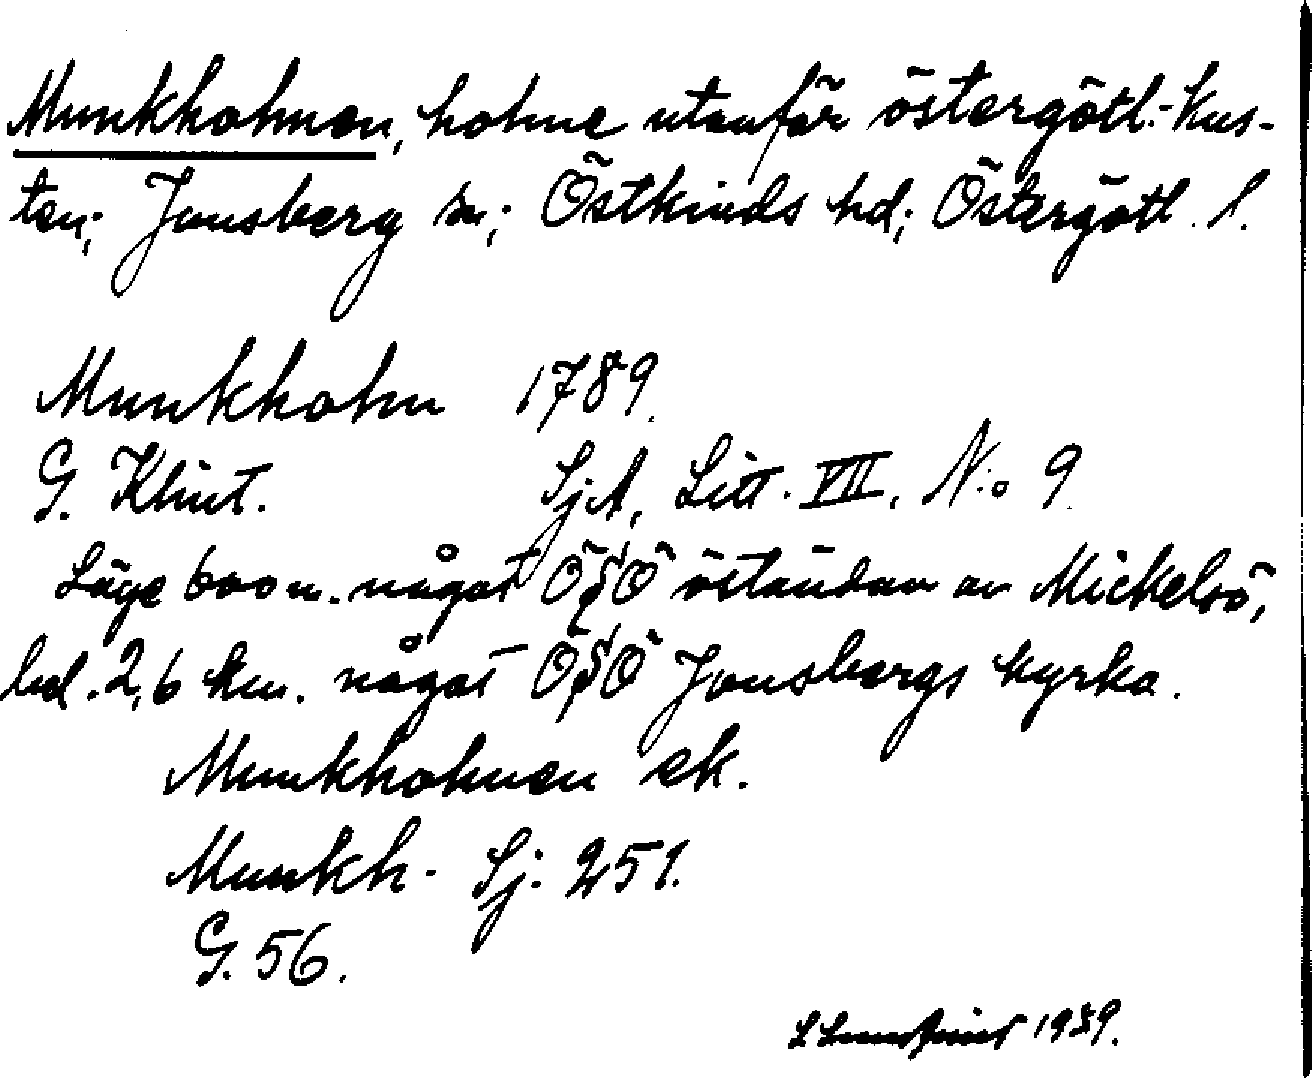 Munkholmen, holme utanför östergötl. kus-
ten; Jonsberg sn; Östkinds hd; Östergötl. l.
Munkholm 1789.
G. Klint. SjA, Litt. VII, N:o 9.
Läge 600 m. något OSO östaudan av Mickelsö,
bel. 2,6 km. något OSO Jonsbergs kyrka.
Munkholmen ek.
Munkh. Sj: 251.
G. 56.
1939.